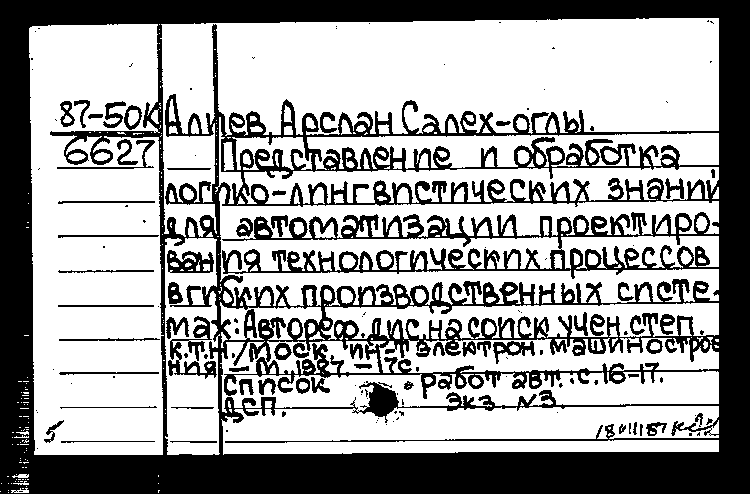 87-50К Алиев, Арслан Салех-оглы.
6627 Представление и обработка
логико-лингвистических знаний
для автоматизации проектиро-
вания технологических процессов
в гибких производственных систе-
мах: Автореф. дис. на соиск. учен. степ.
к.т.н. /Моск. ин-т электрон. машинострое
ния. - М., 1987. - 17с.
Список работ авт.: с.16-17.
ДСП. Экз. №3.
5